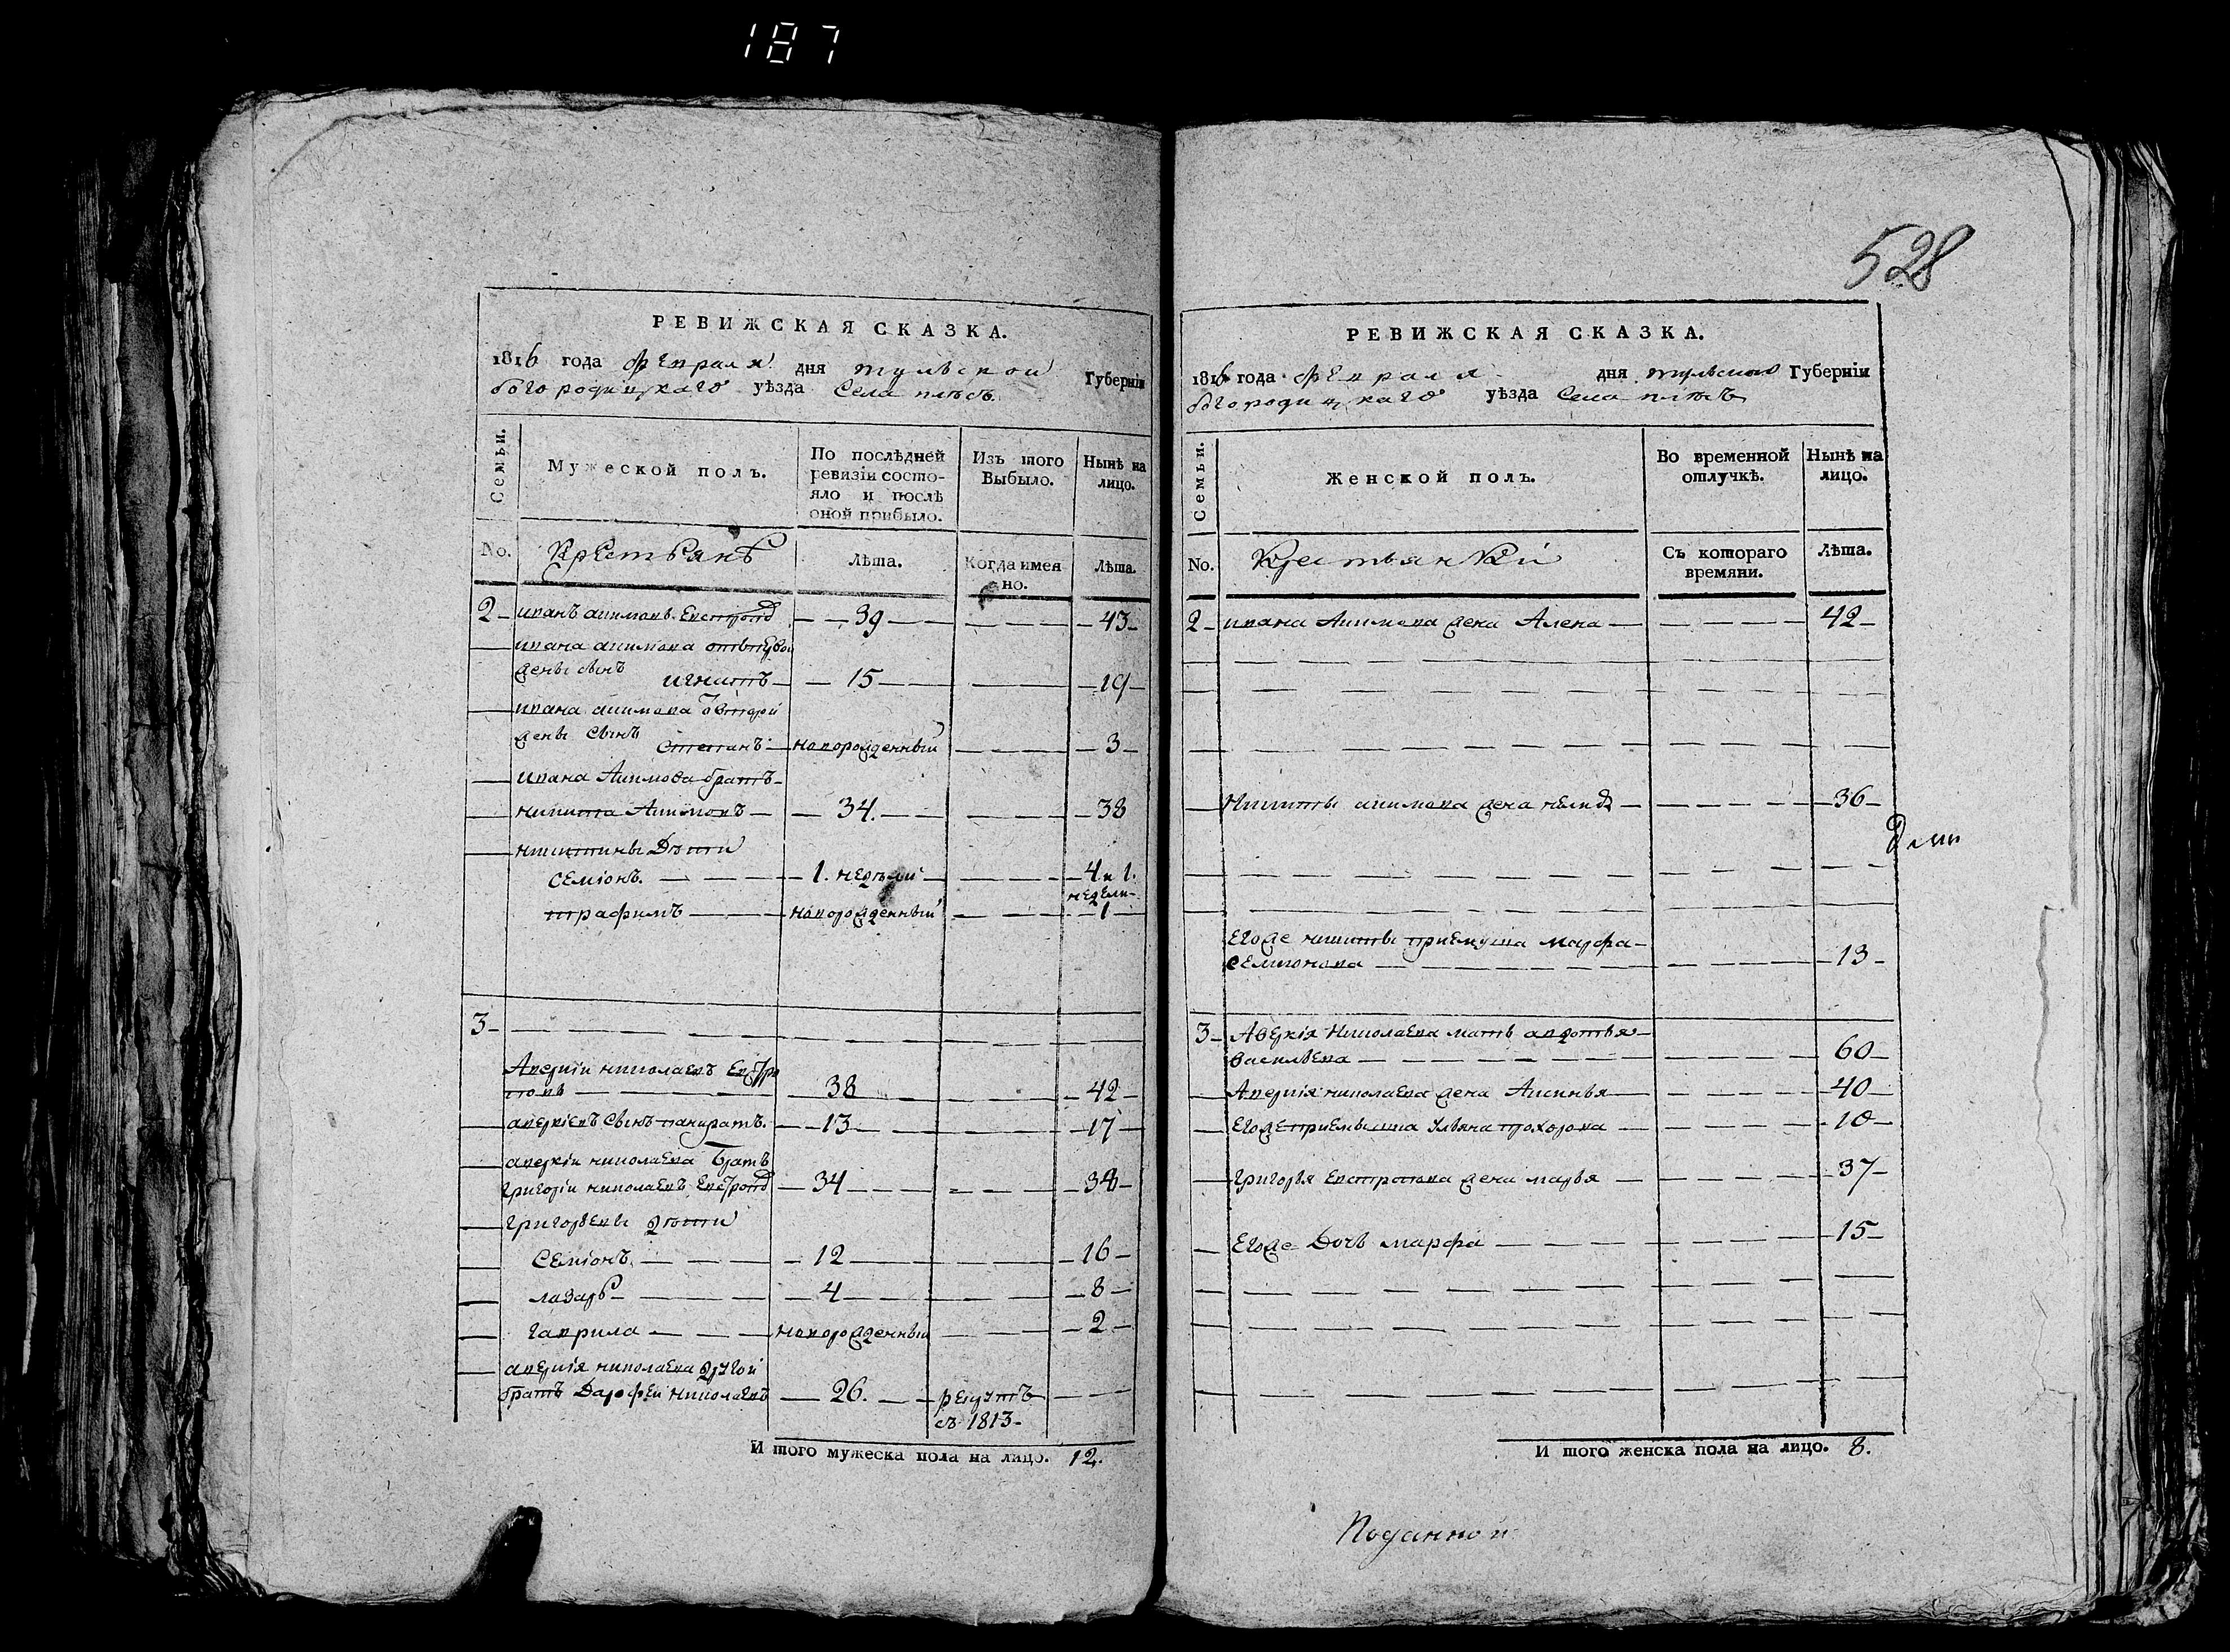 187
РЕВИЖСКАЯ СКАЗКА.
1816 года февраля дня тульской Губерніи
богородицкаго уѣзда Села
Семьи.
Мужеской полъ.
По послѣдней ревизіи состо-
яло и послѣ
оной прибыло.
Изъ того
Выбыло.
Нынѣ на
лицо.
No.
Крестьянъ
Лѣта.
Когда имен
но.
Лѣта.
2 иванъ акимовъ Евстроповъ 39 43
ивана акимова
жены сынъ
игнатъ 15 19
ивана акимова
жены сынъ
степанъ новорожденный 3
ивана Акимова братъ
никита Акимовъ 34. 38
никитины Дѣти
семіонъ. 1. недѣли 4 и 1.
недели
трафимъ новорожденный 1
3
Аверкіи николаевъ Евстро
повъ 38 42
аверкіевъ сынъ панкратъ. 13 17
аверкіи николаева братъ
григорій николаевъ Евстроповъ 34 38
григорьевы дѣти
Семіонъ. 12 16
лазарь 4 8
гаврила новорожденный 2
аверкія николаева другой
братъ Дарофей николаевъ 26. рекрутъ
съ 1813
И того мужеска пола на лицо. 12.
528
РЕВИЖСКАЯ СКАЗКА.
1816 года февраля дня тульской Губерніи
богородицкаго уѣзда Села
Семьи.
Женской полъ.
Во временной
отлучкѣ.
Нынѣ на
лицо.
No.
Крестьянкѣи
Съ котораго
времяни.
Лѣта.
2 ивана Акимова жена Алена 42
Никиты акимова жена 36
Егоже никиты приемуша марфа
семионова 13
3 Аверкія Николаева мать авдотья
васильева 60
Аверкія николаева жена Аксинья 40
Егоже приемыша ульяна прохорова 10
григорья Евстропова жена марья 37
Егоже Дочь марфа 15
И того женска пола на лицо. 8.
Поданной